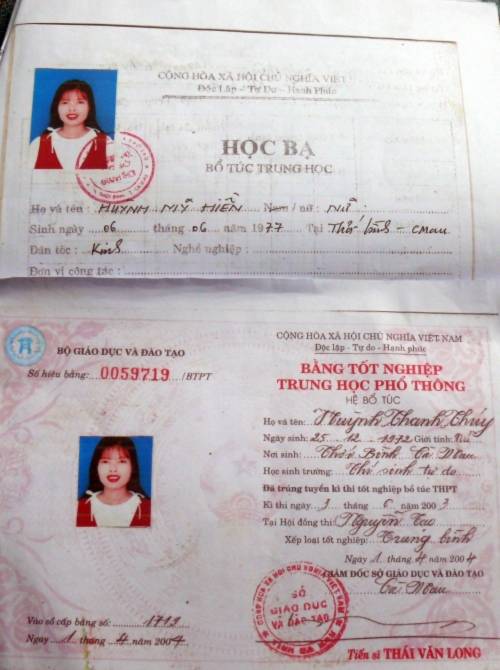 CỘNG HÒA XÃ HỘI CHỦ NGHĨA VIỆT
Độc Lập - Tự Do - Hạnh Phúc
HỌC BẠ
BỔ TÚC TRUNG HỌC
Họ và tên : HUỲNH MỸ HIỀN Nam / nữ : nữ
Sinh ngày 06 tháng 06 năm 1977 Tại Thới bình - CMau
Dân tộc : Kinh Nghề nghiệp :
Đơn vị công tác :
BỘ GIÁO DỤC VÀ ĐÀO TẠO
Số hiệu bằng: 0059719 /BTPT
CỘNG HÒA XÃ HỘI CHỦ NGHĨA VIỆT NAM
Độc lập - Tự do - Hạnh phúc
BẰNG TỐT NGHIỆP
TRUNG HỌC PHỔ THÔNG
HỆ BỔ TÚC
Họ và tên: Huỳnh Thanh Thúy
Ngày sinh: 25 12 1972 Giới tính: Nữ
Nơi sinh Thới Bình Cà Mau
Học sinh trường: Thí sinh tự do
Đã trúng tuyển kì thi tốt nghiệp bổ túc THPT
Kì thi ngày 3 tháng 6 năm 2003
Tại Hội đồng thi: Nguyễn
Xếp loại tốt nghiệp: Trung bình
Ngày 1 tháng 4 năm 2004
GIÁM ĐỐC SỞ GIÁO DỤC VÀ ĐÀO TẠO
Cà Mau
SỞ
GIÁO DỤC
VÀ ĐÀO TẠO
Vào sổ cấp bằng số: 1713
Ngày 1 tháng 4 năm 2004
Tiến sĩ THÁI VĂN LONG